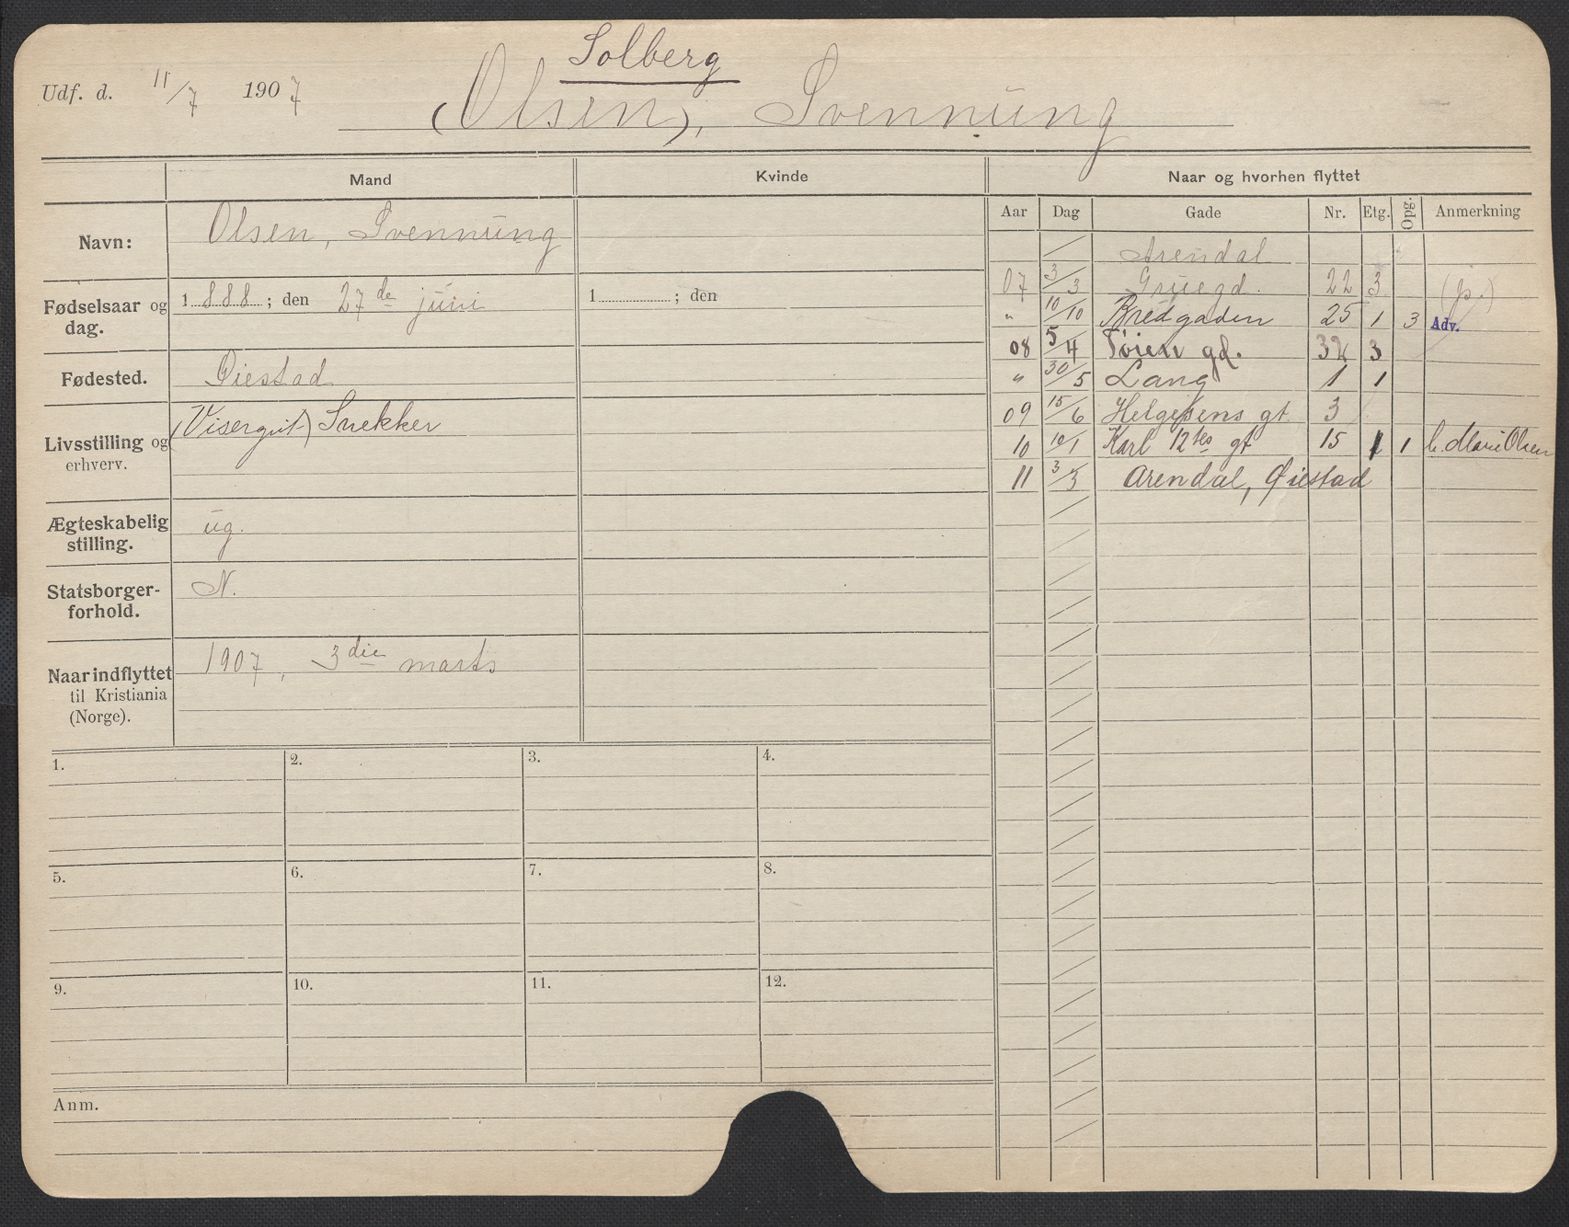 Solberg
Udf. d. 11/7 1907
(Olsen), Svennung
Mand Kvinde Naar og hvorhen flyttet
Aar Dag Gade Nr. Etg. Opg. Anmerkning
Navn: Olsen, Svennung
Fødselsaar og dag. 1888; den 27de juni 1 ; den
Fødested. Øiestad
Livsstilling og erhverv. (Visergut) Snekker
Ægteskabelig stilling. ug.
Statsborgerforhold. N.
Naar indflyttet til Kristiania (Norge). 1907, 3die marts
Arendal
07 3/3 Gruegd. 22 3 (js.)
" 10/10 Bredgaden 25 1 3 Adv.
08 5/4 Tøien gd. 3 3
" 30/5 Lang 1 1
09 15/6 Helgesens gt 3
10 10/1 Karl 12tes gt 15 1 1 b. Marie Olsen
11 3/3 Arendal, Øiestad
1. 2. 3. 4.
5. 6. 7. 8.
9. 10. 11. 12.
Anm.